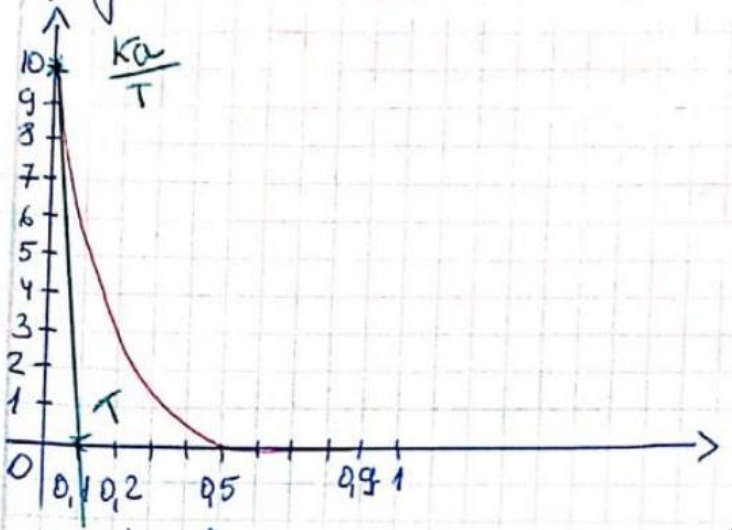 Ka
T
10
9
8
7
6
5
4
3
2
1
T
0
0,1 0,2 0,5 0,9 1